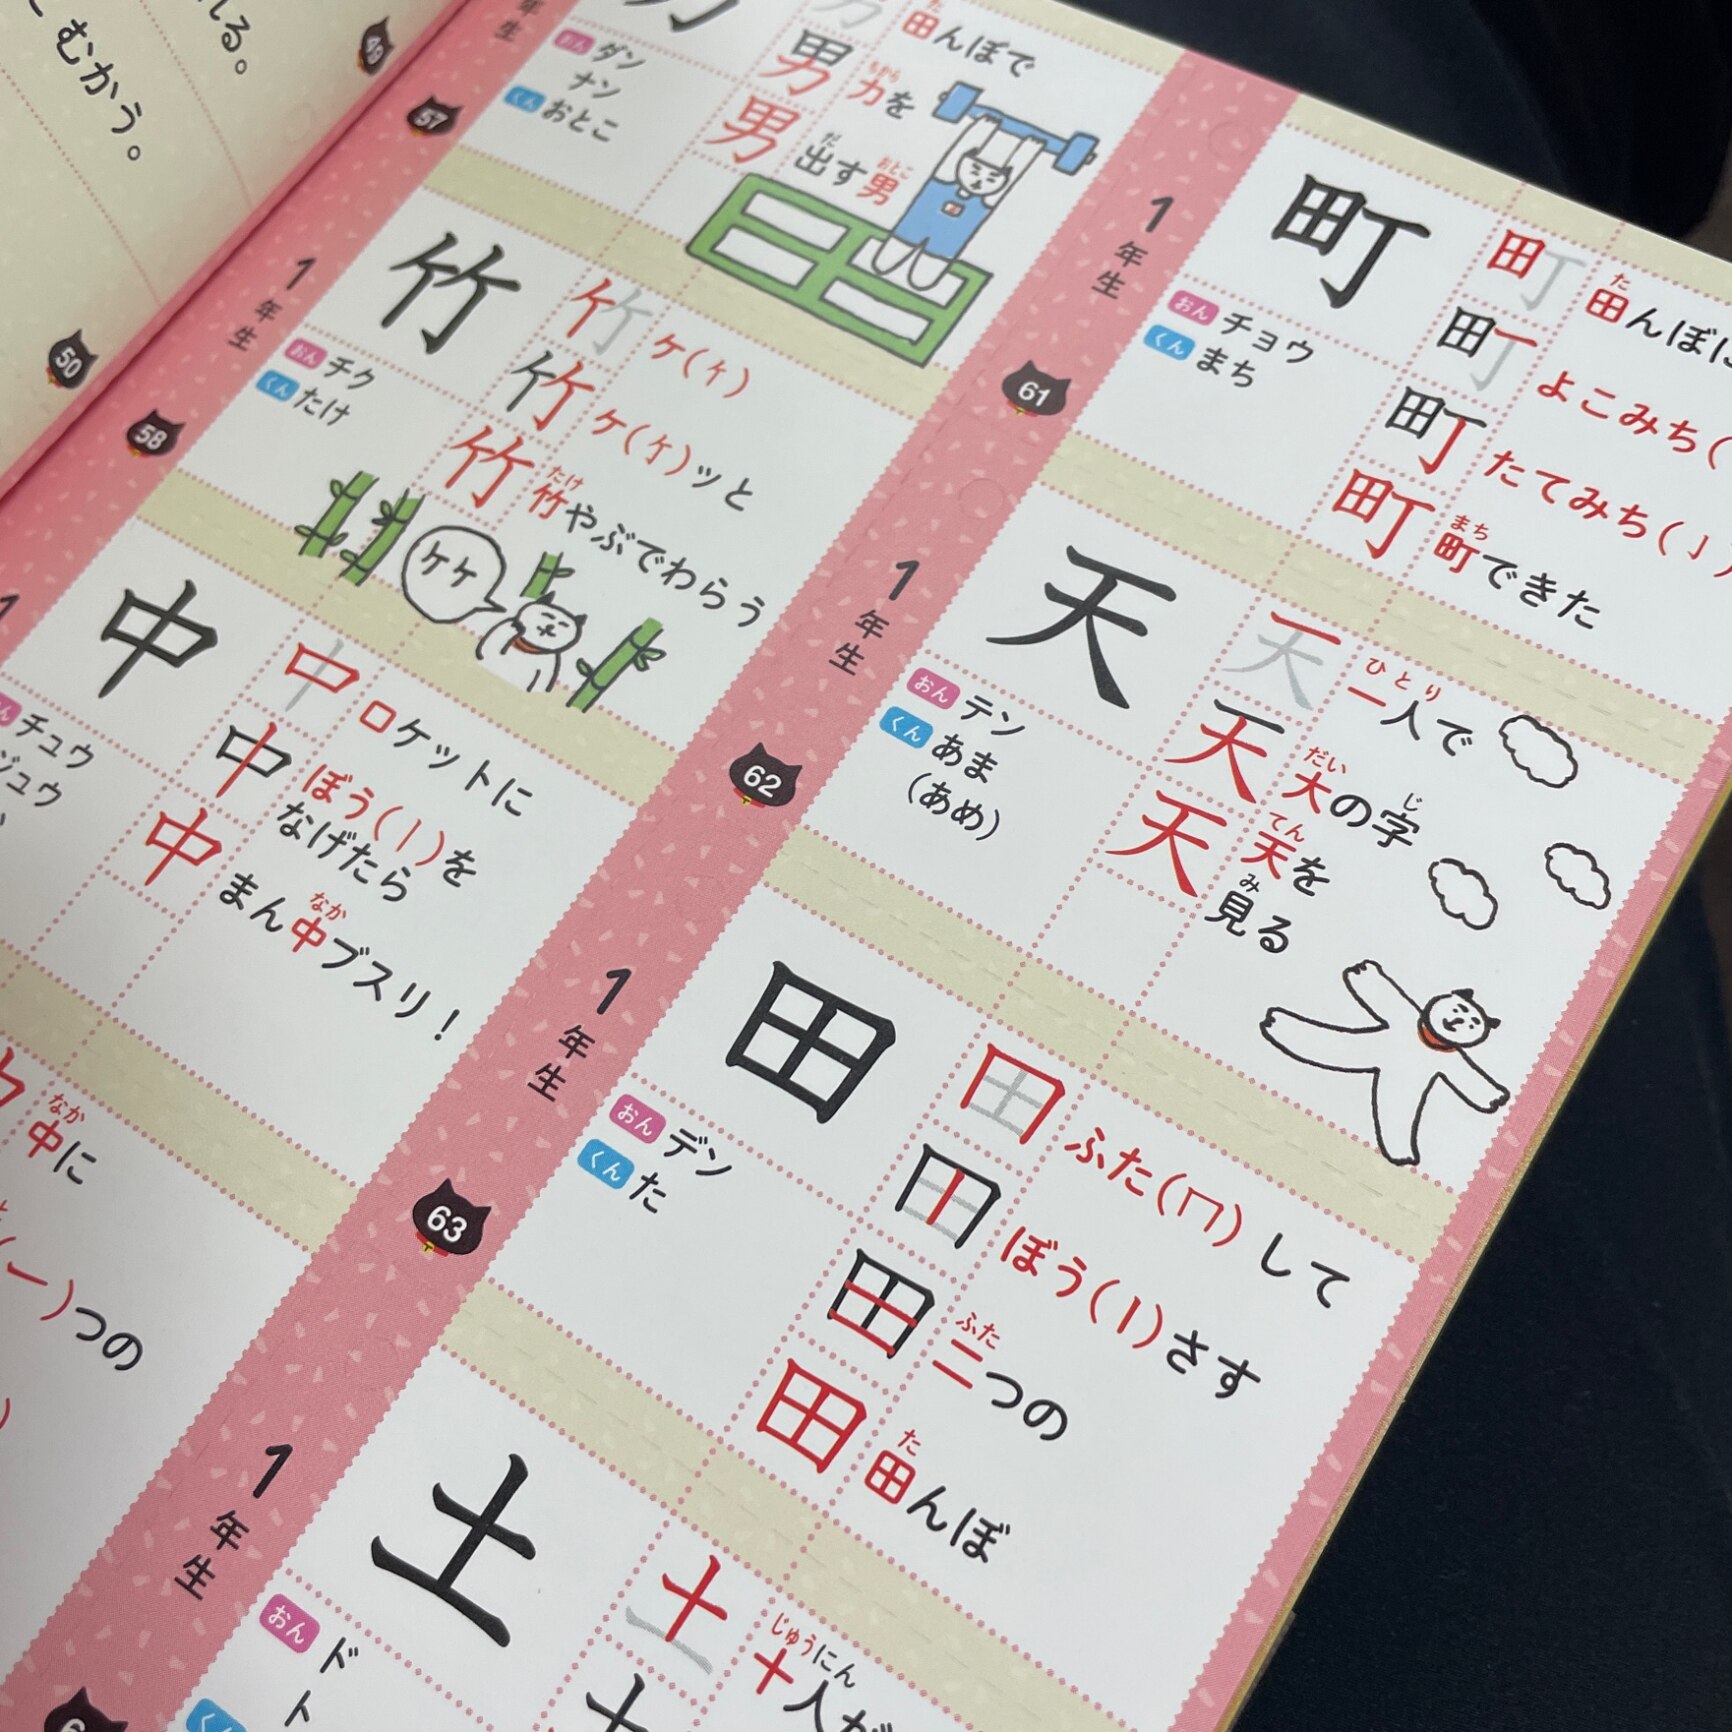 れる。
むかう。
49
50
年生
おん ダン
ナン
くん おとこ
男
男
田んぼで
た
力を
ちから
出す男
だ おとこ
57
1年生
竹
おん チク
くん たけ
竹
竹
竹
ケ(ケ)
ケ(ケ)ッと
竹やぶでわらう
たけ
ケケ
58
中
チュウ
ジュウ
中
中
中
ロケットに
ぼう(｜)を
なげたら
まん中ブスリ！
なか
中に
なか
(一)つの
1年生
町
おん チョウ
くん まち
町
町
町
町
田んぼに
た
よこみち(
たてみち(亅)
町できた
まち
61
1年生
天
おん テン
くん あま
(あめ)
天
天
天
一人で
ひとり
大の字
だい じ
天を
てん
見る
み
62
1年生
田
おん デン
くん た
田
田
田
田
ふた(冂)して
ぼう(｜)さす
二つの
ふた
田んぼ
た
63
1年生
土
おん ド
ト
くん
土
土
十人が
じゅうにん